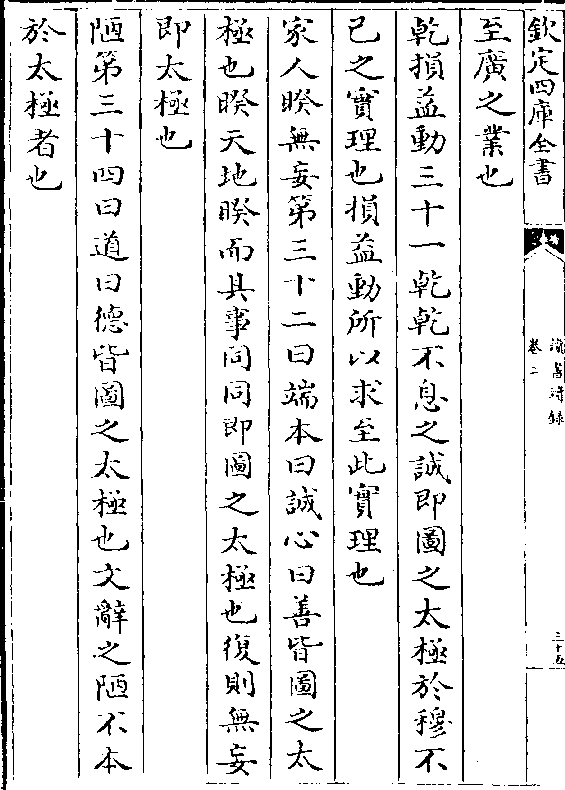 欽定四庫全書
讀書續錄
卷二
三十五
至廣之業也
乾損益動三十一乾乾不息之誠即圖之太極於穆不
已之實理也損益動所以求至此實理也
家人睽無妄第三十二曰端本曰誠心曰善皆圖之太
極也睽天地睽而其事同同即圖之太極也復則無妄
即太極也
陋第三十四曰道曰德皆圖之太極也文辭之陋不本
於太極者也